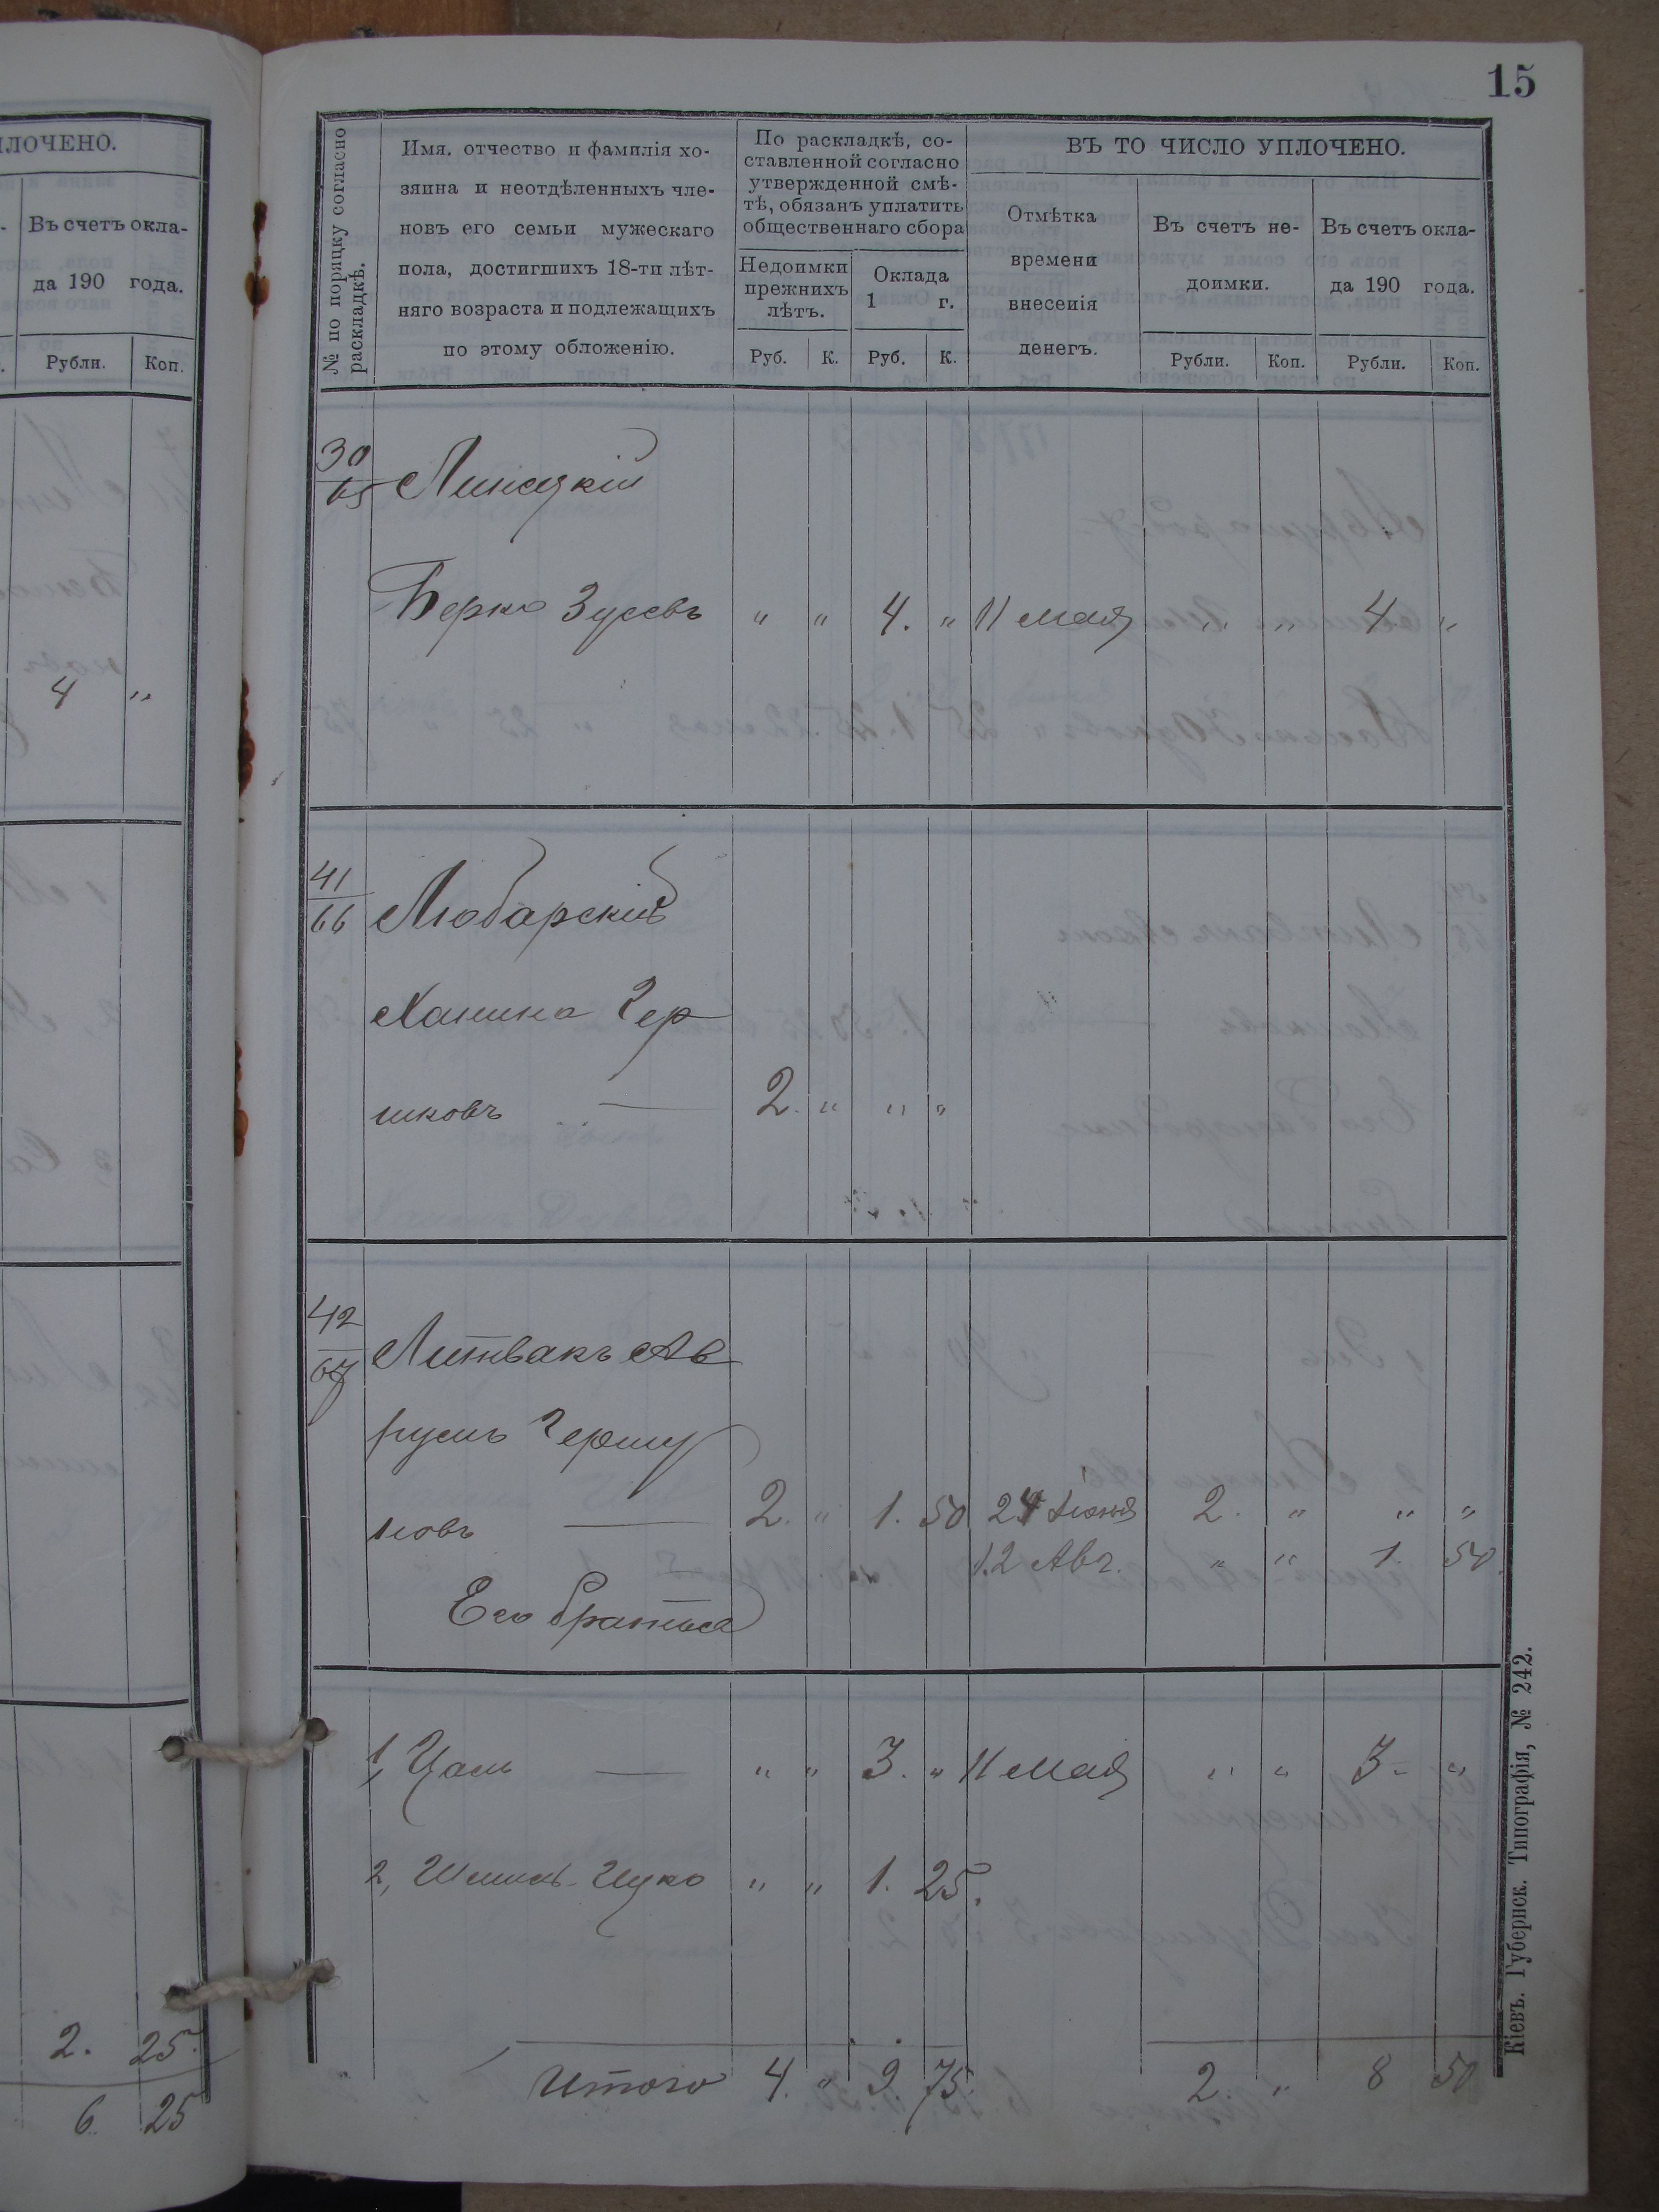 15
ПЛОЧЕНО.
Въ счетъ окла-
да 190 года.
Рубли. Коп.
4 "
2. 25.
6. 25
№ по порядку согласно
раскладкѣ.
Имя, отчество и фамилія хо-
зяина и неотдѣленныхъ чле-
новъ его семьи мужескаго
пола, достигшихъ 18-ти лѣт-
няго возраста и подлежащихъ
по этому обложенію.
По раскладкѣ, со-
ставленной согласно
утвержденной смѣ-
тѣ, обязанъ уплатить
общественнаго сбора
Недоимки
прежнихъ
лѣтъ.
Оклада
1 г.
Руб. К. Руб. К.
ВЪ ТО ЧИСЛО УПЛОЧЕНО.
Отмѣтка
времени
внесенія
денегъ.
Въ счетъ не-
доимки.
Рубли. Коп.
Въ счетъ окла-
да 190 года.
Рубли. Коп.
30
65 Линецкій
Берко Зусевъ " " 4. " 11 мая " " 4. "
41
66 Любарскій
Ханина Гер
шковъ — 2. " " "
42
67 Литвакъ Ав
румъ Гершу
новъ — 2. " 1. 50 24 Іюня 2. " " "
12 Авг. " " 1. 50.
Его братья
1, Цаль — " " 3. " 11 мая " " 3 - "
2, Шмиль-Ицко " " 1. 25.
Итого 4. " 9. 75. 2. " 8 50
Кіевъ. Губернск. Типографія, № 242.